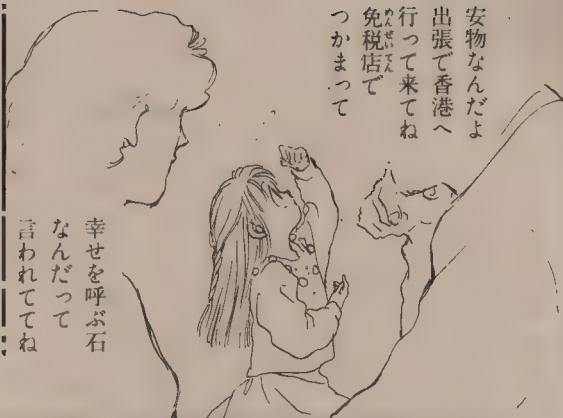 安物なんだよ
出張で香港へ
行って来てね
免税店で
つかまって
幸せを呼ぶ石
なんだって
言われててね